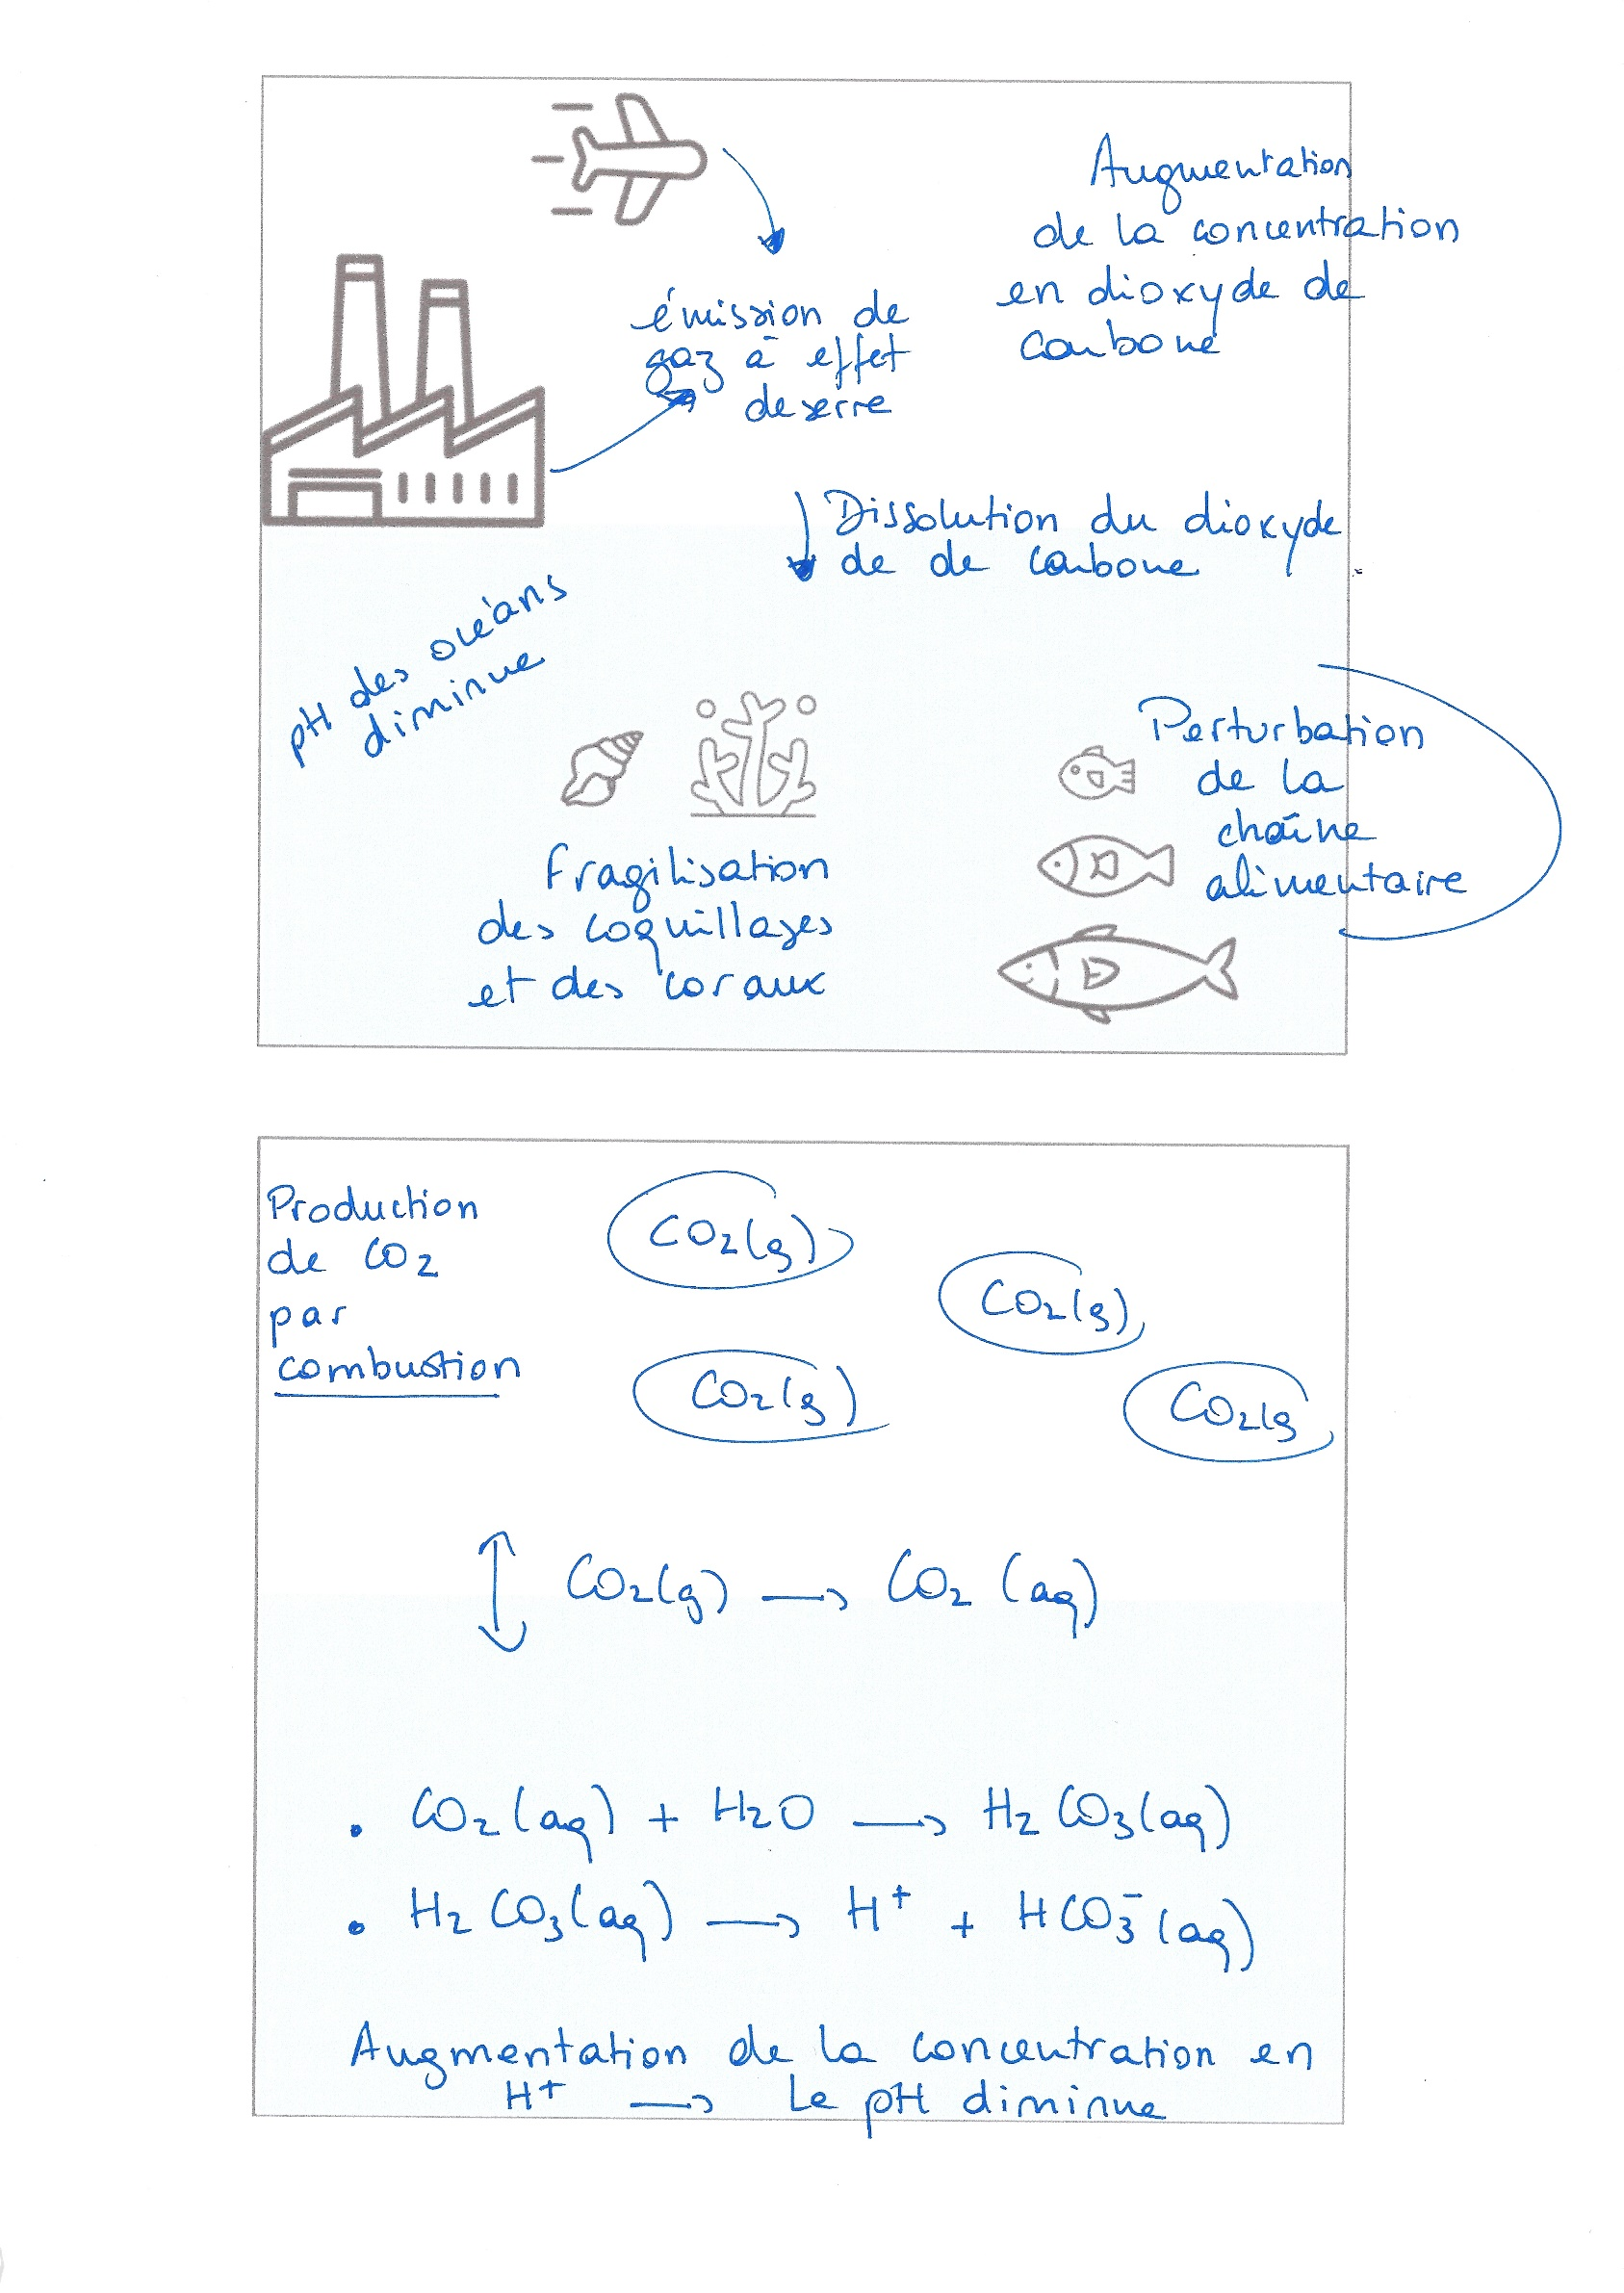 Augmentation
de la concentration
en dioxyde de
carbone
émission de
gaz à effet
de serre
Dissolution du dioxyde
de de carbone
pH des océans
diminue
Perturbation
de la
chaîne
alimentaire
fragilisation
des coquillages
et des coraux
Production
de CO2
par
combustion
CO2(g)
CO2(g)
CO2(g)
CO2(g
CO2(g) → CO2 (aq)
• CO2(aq) + H2O → H2CO3(aq)
• H2CO3(aq) → H+ + HCO3-(aq)
Augmentation de la concentration en
H+ → Le pH diminue